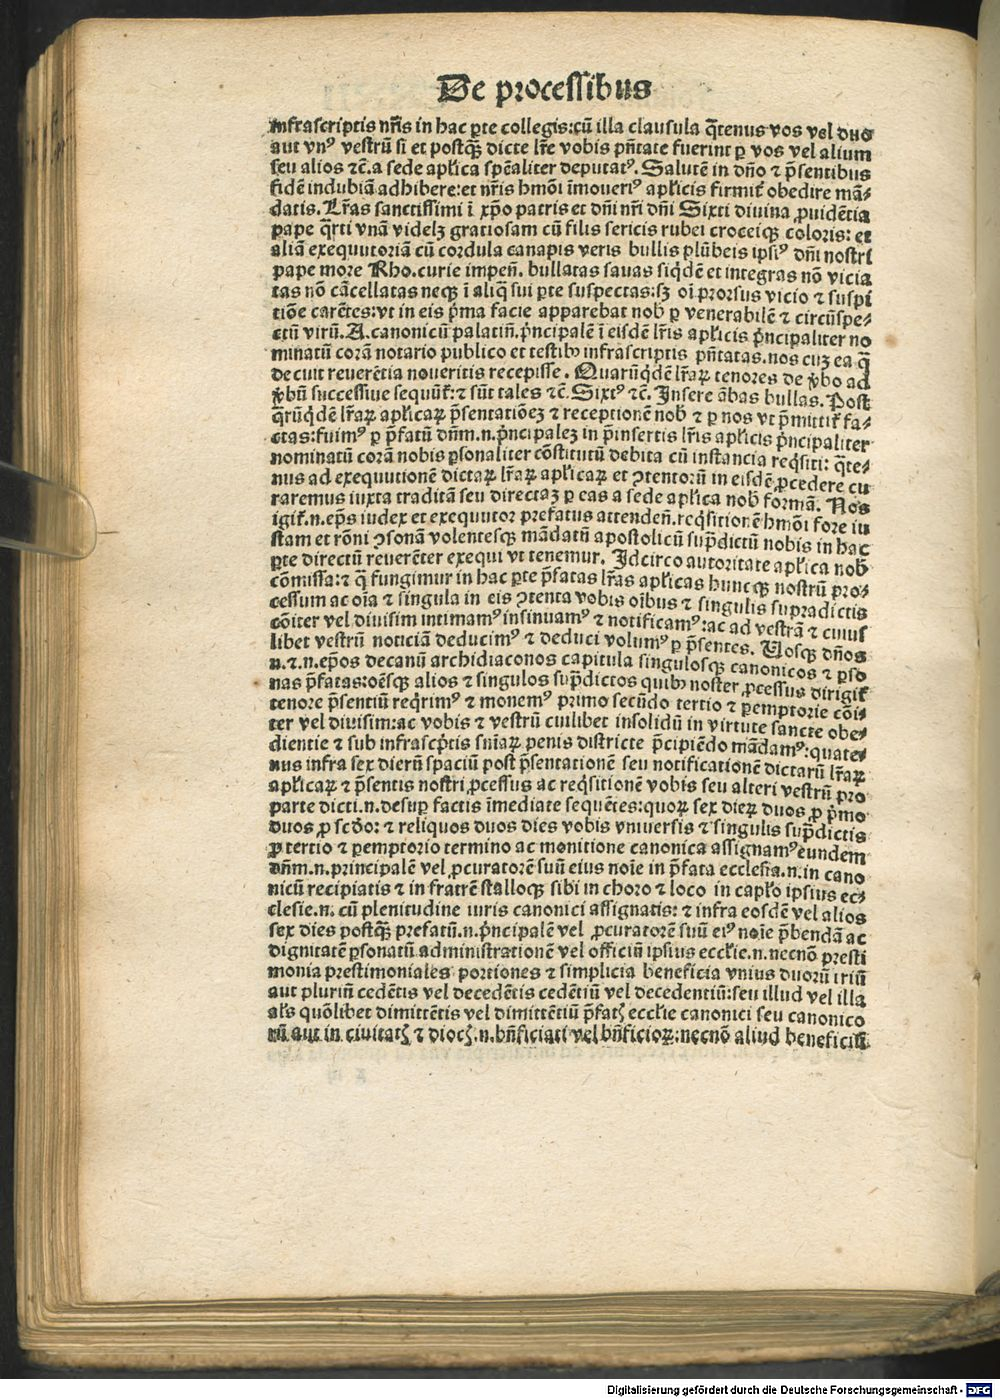 De processibus
infrascriptis nr̃is in hac ꝑte collegis: cũ illa clausula q̃tenus vos vel duo
aut vnꝰ vestrũ si et postq̃ꝫ dicte lr̃e vobis pñtate fuerint ꝑ vos vel alium
seu alios ⁊c̃. a sede apl̃ica spẽaliter deputatꝰ. Salutẽ in dño ⁊ p̃sentibus
fidẽ indubiã adhibere: et nr̃is hmõi ĩmoueriꝰ apl̃icis firmit̃ obedire mã⸗
datis. Lr̃as sanctissimi ĩ xp̃o patris et dñi nr̃i dñi Sixti diuina ꝓuidẽtia
pape q̃rti vnã videlꝫ gratiosam cũ filis sericis rubei croceiqꝫ coloris: et
aliã exequutoriã cũ cordula canapis veris bullis plũbeis ipsiꝰ dñi nostri
pape more Rho. curie impeñ. bullatas sauas siq̃dẽ et integras nõ vicia
tas nõ cãcellatas neqꝫ ĩ aliq̃ sui ꝑte suspectas: sꝫ oĩ prorsus vicio ⁊ suspi
tiõe carẽtes: vt in eis p̃ma facie apparebat nob̃ ꝑ venerabilẽ ⁊ circũspe⸗
ctũ virũ. A. canonicũ palatiñ. p̃ncipalẽ ĩ eisdẽ lr̃is apl̃icis p̃ncipaliter no
minatũ corã notario publico et testibꝫ infrascriptis pñtatas. nos cuꝫ ea q̃
decuit reuerẽtia noueritis recepisse. Quarũq̃dẽ lr̃aꝝ tenores de ṽbo ad
ṽbũ successiue sequũt̃: ⁊ sũt tales ⁊c̃. Sixtꝰ ⁊c̃. Insere ãbas bullas. Post
q̃rũq̃dẽ lr̃aꝝ apl̃icaꝝ p̃sentatiõeꝫ ⁊ receptionẽ nob̃ ⁊ ꝑ nos vt p̃mittit̃ fa⸗
ctas: fuimꝰ ꝑ p̃fatũ dñm. n. p̃ncipaleꝫ in p̃insertis lr̃is apl̃icis p̃ncipaliter
nominatũ corã nobis ꝑsonaliter cõstitutũ debita cũ instancia req̃siti: q̃te⸗
nus ad exequutionẽ dictaꝝ lr̃aꝝ apl̃icaꝝ et ꝯtentorũ in eisdẽ ꝓcedere cu
raremus iuxta traditã seu directaꝫ ꝑ eas a sede apl̃ica nob̃ formã. Nos
igit̃. n. ep̃s iudex et exequutor prefatus attendeñ. req̃sitionẽ hmõi fore iu
stam et rõni ꝯsonã volentesqꝫ mãdatũ apostolicũ sup̃dictũ nobis in hac
ꝑte directũ reuerẽter exequi vt tenemur. Idcirco autoritate apl̃ica nob̃
cõmissa: ⁊ q̃ fungimur in hac ꝑte p̃fatas lr̃as apl̃icas huncqꝫ nostrũ pro⸗
cessum ac oĩa ⁊ singula in eis ꝯtenta vobis oĩbus ⁊ singulis supradictis
cõiter vel diuisim intimamꝰ insinuamꝰ ⁊ notificamꝰ: ac ad vestrã ⁊ cuius
libet vestrũ noticiã deducimꝰ ⁊ deduci volumꝰ ꝑ p̃sentes. Uosqꝫ dños
n. ⁊. n. ep̃os decanũ archidiaconos capitula singulosqꝫ canonicos ⁊ ꝑso
nas p̃fatas: oẽsqꝫ alios ⁊ singulos sup̃dictos quibꝫ noster ꝓcessus dirigit̃
tenore p̃sentiũ req̃rimꝰ ⁊ monemꝰ primo secũdo tertio ⁊ ꝑemptorie cõi⸗
ter vel diuisim: ac vobis ⁊ vestrũ cuilibet insolidũ in virtute sancte obe⸗
dientie ⁊ sub infrascp̃tis sñiaꝝ penis districte p̃cipiẽdo mãdamꝰ: quate⸗
nus infra sex dierũ spaciũ post p̃sentationẽ seu notificationẽ dictarũ lr̃aꝝ
apl̃icaꝝ ⁊ p̃sentis nostri ꝓcessus ac req̃sitionẽ vobis seu alteri vestrũ pro
parte dicti. n. desuꝑ factis ĩmediate sequẽtes: quoꝝ sex dieꝝ duos ꝓ p̃mo
duos ꝓ scd̃o: ⁊ reliquos duos dies vobis vniuersis ⁊ singulis sup̃dictis
ꝓ tertio ⁊ ꝑemptorio termino ac monitione canonica assignamꝰ eundem
dñm. n. principalẽ vel ꝓcuratorẽ suũ eius noĩe in p̃fata ecclesia. n. in cano
nicũ recipiatis ⁊ in fratrẽ stalloqꝫ sibi in choro ⁊ loco in capl̃o ipsius ec⸗
clesie. n. cũ plenitudine iuris canonici assignatis: ⁊ infra eosdẽ vel alios
sex dies postq̃ꝫ prefatũ. n. p̃ncipalẽ vel ꝓcuratorẽ suũ eiꝰ noĩe p̃bendã ac
dignitatẽ ꝑsonatũ administrationẽ vel officiũ ipsius eccl̃ie. n. necnõ presti
monia prestimoniales portiones ⁊ simplicia beneficia vnius duorũ triũ
aut pluriũ cedẽtis vel decedẽtis cedẽtiũ vel decedentiũ: seu illud vel illa
al̃s quõlibet dimittẽtis vel dimittẽtiũ p̃fatꝭ eccl̃ie canonici seu canonico
rũ aut in ciuitatꝭ ⁊ diocꝭ. n. bñficiati vel bñficioꝝ: necnõ aliud beneficiũ
Digitalisierung gefördert durch die Deutsche Forschungsgemeinschaft - DFG